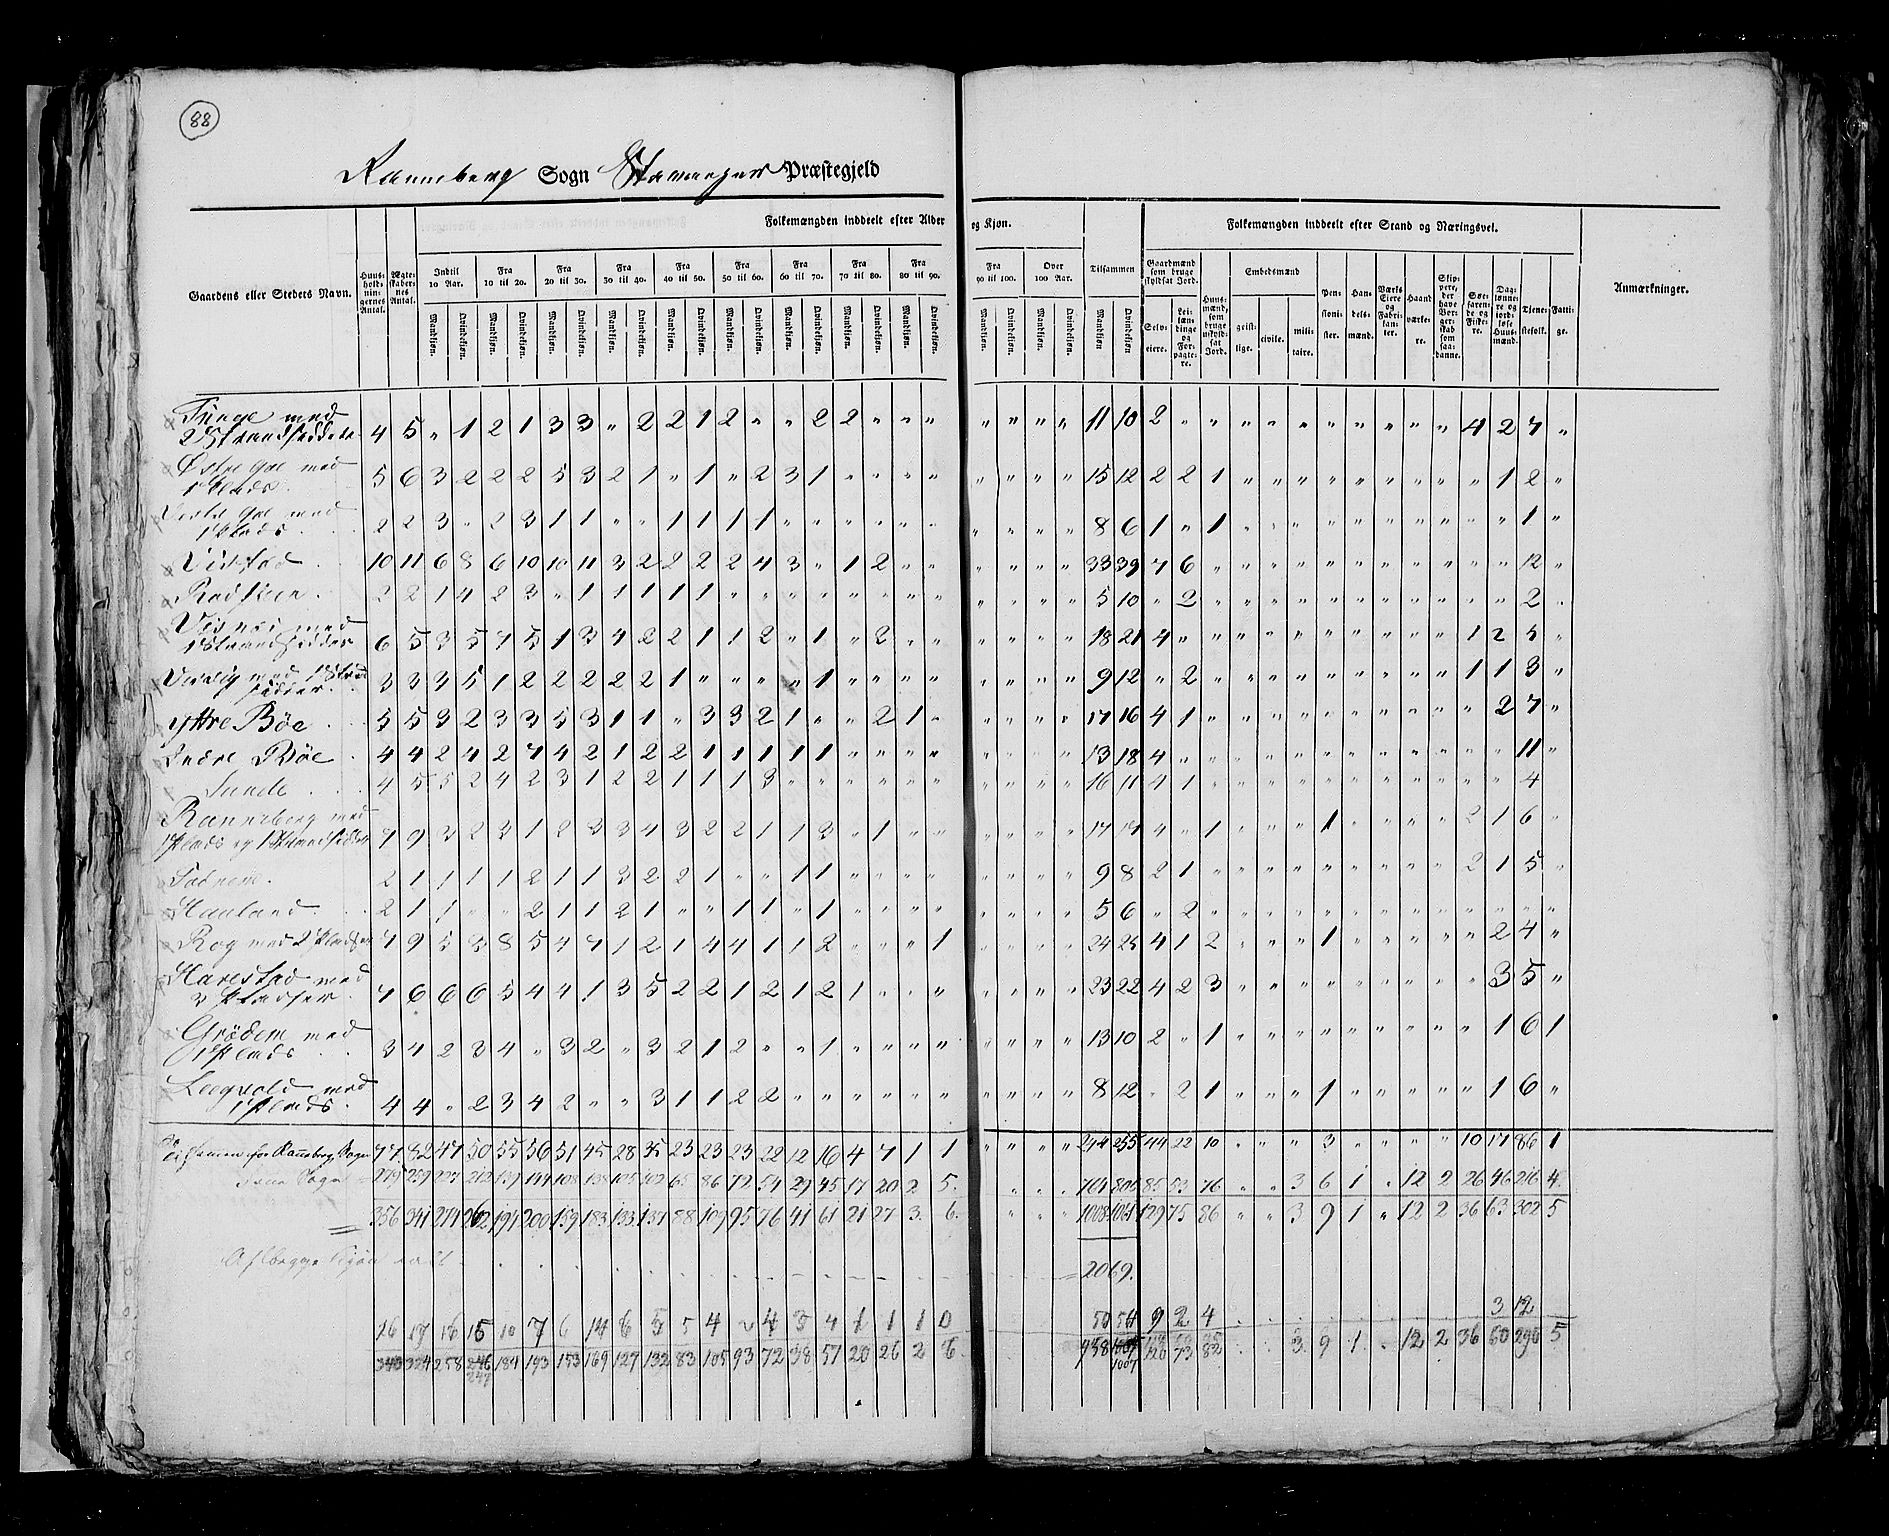 88
Ranneberg Sogn Stavanger Præstegjeld
Folkemængden inddeelt efter Alder og Kjøn.
Folkemængden inddeelt efter Stand og Næringsvei.
Gaardens eller Stedets Navn.
Huus-holdnin-gernes Antal.
Ægte-skaber-nes Antal.
Indtil 10 Aar.
Fra 10 til 20.
Fra 20 til 30.
Fra 30 til 40.
Fra 40 til 50.
Fra 50 til 60.
Fra 60 til 70.
Fra 70 til 80.
Fra 80 til 90.
Fra 90 til 100.
Over 100 Aar.
Tilsammen
Mandkiøn. Qvindekiøn.
Gaardmænd som bruge skyldsat Jord.
Selv-eiere.
Lei-læn-dinge og For-pagte-re.
Huus-mænd, som bruge uskyld-sat Jord.
Embedsmænd
geist-lige.
civile.
mili-taire.
Pen-sioni-ster.
Han-dels-mænd.
Værks Eiere og Fabri-kan-ter.
Haand værke-re.
Søe-faren-de og Fiske-re.
Dag-lønne-re og jord-løse Huus-mænd.
Tjene-stefolk.
Fatti-ge.
Anmærkninger.
Tunge med
2 Strandsiddere 4 5 „ 1 2 1 3 3 „ 2 2 1 2 „ „ 2 2 „ „ „ „ „ „ „ 11 10 2 „ „ „ „ „ „ „ „ „ „ 4 2 7 „
Østre Goe med
1 Plads 5 6 3 2 2 2 5 3 2 1 „ 1 „ 2 3 1 „ „ „ „ „ „ „ „ 15 12 2 2 1 „ „ „ „ „ „ „ „ „ 1 2 „
Vestre Goe med
1 Plads 2 2 3 „ 2 3 1 1 „ „ 1 1 1 1 „ „ „ „ „ „ „ „ „ „ 8 6 1 „ 1 „ „ „ „ „ „ „ „ „ „ 1 „
Vistad 10 11 6 8 6 10 10 11 3 2 2 2 2 4 3 „ 1 2 „ „ „ „ „ „ 33 39 7 6 „ „ „ „ „ „ „ „ „ „ „ 12 „
2 2 1 4 2 3 „ 1 1 1 1 1 „ „ „ „ „ „ „ „ „ „ „ „ 5 10 „ 2 „ „ „ „ „ „ „ „ „ „ „ 2 „
med
1 Strandsidder 6 5 3 5 7 5 1 3 4 2 2 1 1 2 „ 1 „ 2 „ „ „ „ „ „ 18 21 4 „ „ „ „ „ „ „ „ „ „ 1 2 5 „
med 1 Strand
sidder 3 3 3 5 1 2 2 2 2 2 1 „ „ „ „ 1 „ „ „ „ „ „ „ „ 9 12 „ 2 „ „ „ „ „ „ „ „ „ 1 1 3 „
Yttre Bøe 5 5 3 2 3 3 5 3 1 1 „ 3 3 2 1 „ „ 2 1 „ „ „ „ „ 17 16 4 1 „ „ „ „ „ „ „ „ „ „ 2 7 „
Indre Bøe 4 4 2 4 2 7 4 2 1 2 2 1 1 1 1 1 „ „ „ „ „ „ „ „ 13 18 4 „ „ „ „ „ „ „ „ „ „ „ „ 11 „
Sunde 4 5 5 2 4 2 3 1 2 2 1 1 1 3 „ „ „ „ „ „ „ „ „ „ 16 11 4 1 „ „ „ „ „ „ „ „ „ „ „ 4
Ranneberg med
1 Plads og 1 Strandsidder 7 9 3 2 3 1 2 3 3 4 3 2 2 1 1 3 „ 1 „ „ „ „ „ „ 17 17 4 „ 1 „ „ „ 1 „ „ „ „ 2 1 6 „
2 1 1 1 1 2 1 1 3 2 2 1 „ „ 1 1 „ „ „ „ „ „ „ „ 9 8 2 1 „ „ „ „ „ „ „ „ „ 2 1 5 „
Hauland 2 1 1 „ „ 2 1 1 2 1 „ „ 1 1 „ 1 „ „ „ „ „ „ „ „ 5 6 „ 2 „ „ „ „ „ „ „ „ „ „ „ „ „
Røg med 2 Pladser 7 9 5 3 8 5 4 7 1 2 1 4 4 1 1 2 „ „ „ 1 „ „ „ „ 24 25 4 1 2 „ „ „ 1 „ „ „ „ „ 2 4 „
Harestad med
3 Pladser 7 6 6 6 5 4 4 1 3 5 2 2 1 2 1 2 1 „ „ „ „ „ „ „ 23 22 4 2 3 „ „ „ „ „ „ „ „ „ 3 5 „
Grødem med
1 Plads 3 4 2 3 4 „ 3 2 „ 3 2 1 2 „ „ 1 „ „ „ „ „ „ „ „ 13 10 2 „ 1 „ „ „ „ „ „ „ „ „ 1 6 1
med
1 Plads 4 4 „ 2 3 4 2 „ „ 3 1 1 2 2 „ „ „ „ „ „ „ „ „ „ 8 12 „ 2 1 „ „ „ 1 „ „ „ „ „ 1 6 „
Tilsamen for Ranneberg Sogn 77 82 47 50 55 56 51 45 28 35 23 23 23 22 12 16 4 7 1 1 „ „ „ „ 244 255 44 22 10 „ „ „ 3 „ „ „ „ 10 17 86 1
Sogn 279 259 227 212 139 144 108 138 105 102 65 86 72 54 29 45 17 20 2 5 „ „ „ 764 806 85 53 76 „ „ 3 6 1 „ 12 2 26 46 216 4
356 341 274 262 194 200 159 183 133 137 88 109 95 76 41 61 21 27 3 6 „ „ „ 1008 1061 129 75 86 „ „ 3 9 1 „ 12 2 36 63 302 5
Af begge Kjøn i alt = 2069.
16 17 16 15 10 7 6 14 6 5 5 4 2 4 3 4 1 1 1 0 50 54 9 2 4 3 12
343 324 258 246 184 193 153 169 127 132 83 105 93 72 38 57 20 26 2 6 958 1007 120 73 82 3 9 1 12 2 36 60 290 5
247 1007